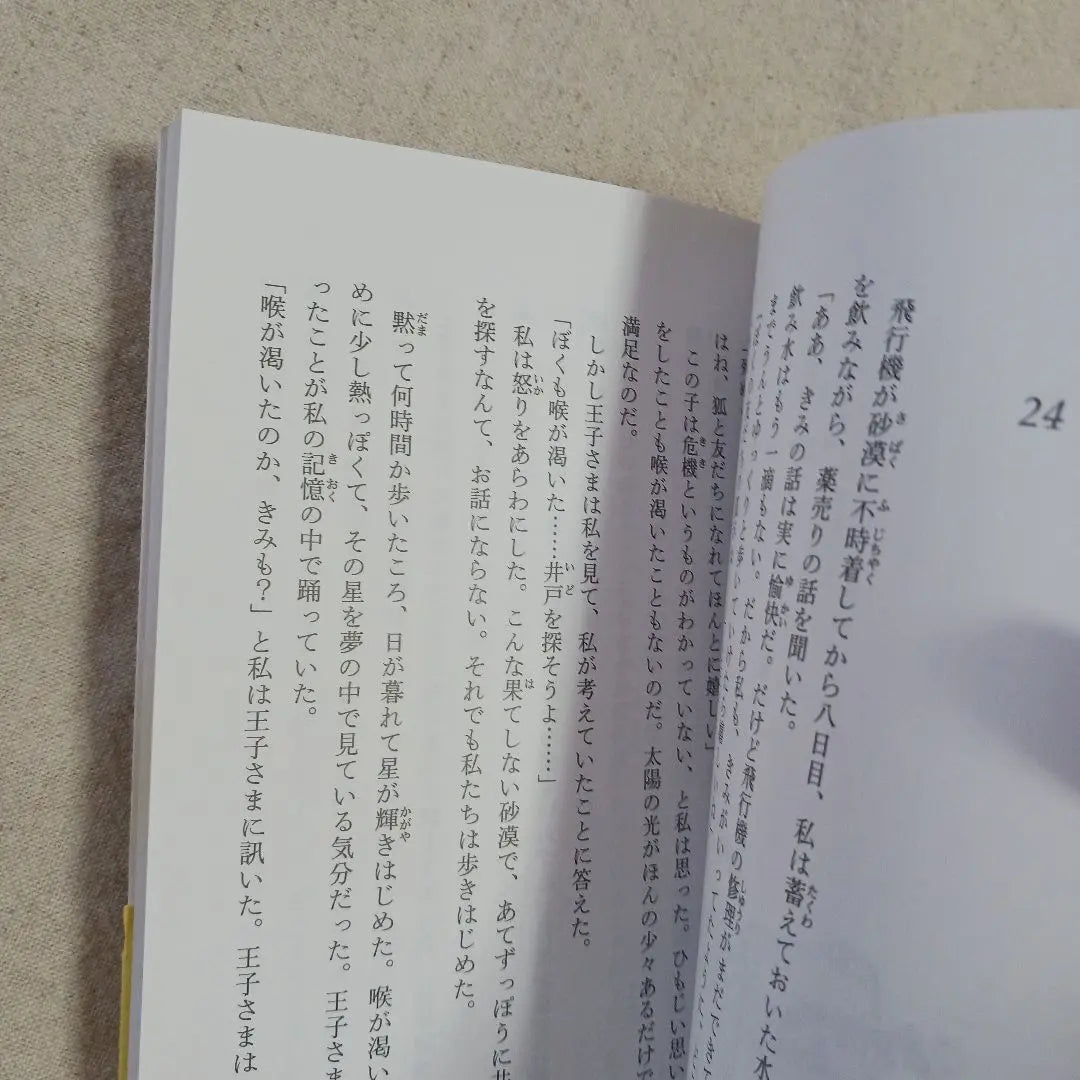 24
飛行機が砂漠に不時着してから八日目、私は蓄えておいた水
を飲みながら、薬売りの話を聞いた。
「ああ、きみの話は実に愉快だ。だけど飛行機の修理がまだできて
飲み水はもう一滴もない。だから私も、きみがいってたように、
はね、狐と友だちになれてほんとに嬉しい」
この子は危機というものがわかっていない、と私は思った。ひもじい思い
をしたことも喉が渇いたこともないのだ。太陽の光がほんの少々あるだけで
満足なのだ。
しかし王子さまは私を見て、私が考えていたことに答えた。
「ぼくも喉が渇いた……井戸を探そうよ……」
私は怒りをあらわにした。こんな果てしない砂漠で、あてずっぽうに井
を探すなんて、お話にならない。それでも私たちは歩きはじめた。
黙って何時間か歩いたころ、日が暮れて星が輝きはじめた。喉が渇い
めに少し熱っぽくて、その星を夢の中で見ている気分だった。王子さま
ったことが私の記憶の中で踊っていた。
「喉が渇いたのか、きみも？」と私は王子さまに訊いた。王子さまは